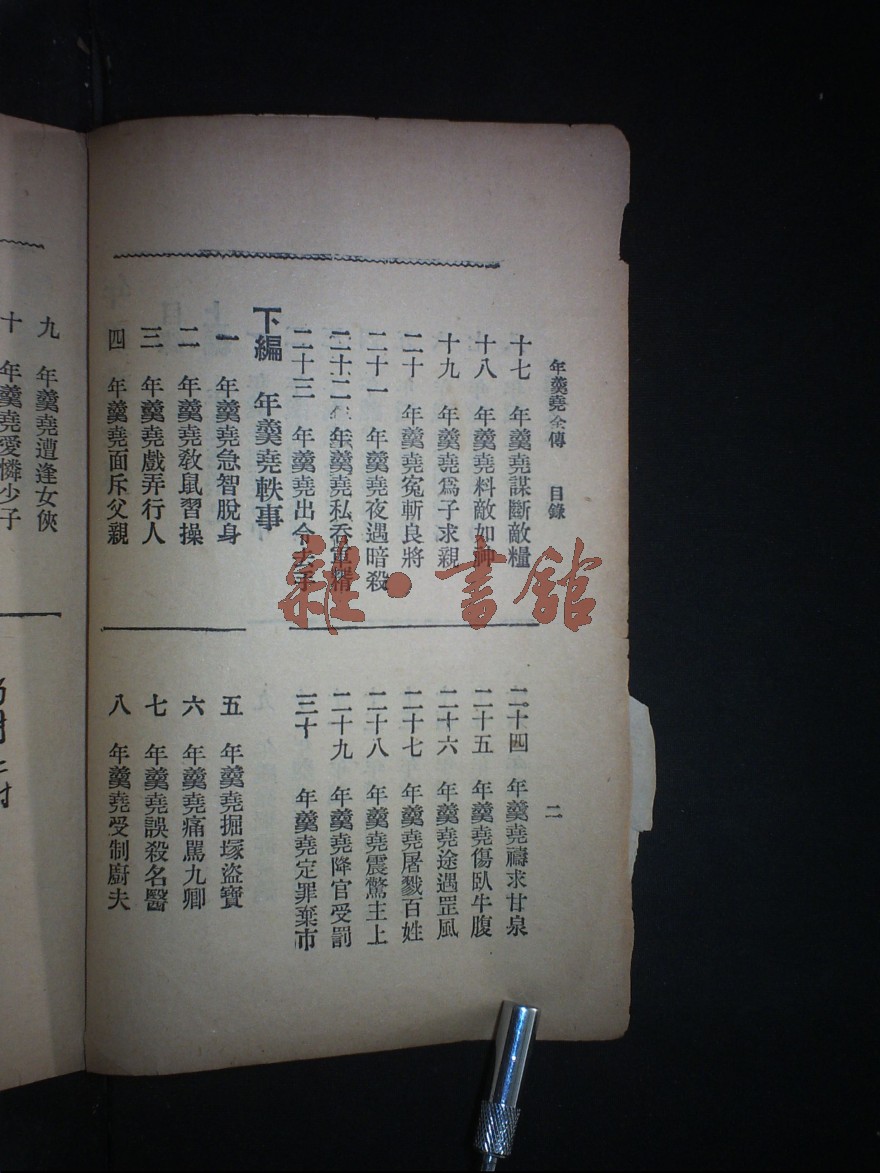 年羹堯全傳 目錄 二
十七 年羹堯謀斷敵糧
十八 年羹堯料敵如神
十九 年羹堯爲子求親
二十 年羹堯冤斬良將
二十一 年羹堯夜遇暗殺
二十二 年羹堯私吞軍糈
二十三 年羹堯出令去手
二十四 年羹堯禱求甘泉
二十五 年羹堯傷臥牛腹
二十六 年羹堯途遇罡風
二十七 年羹堯屠戮百姓
二十八 年羹堯震驚主上
二十九 年羹堯降官受罰
三十 年羹堯定罪棄市
下編 年羹堯軼事
一 年羹堯急智脫身
二 年羹堯敎鼠習操
三 年羹堯戲弄行人
四 年羹堯面斥父親
五 年羹堯掘塚盜寶
六 年羹堯痛罵九卿
七 年羹堯誤殺名醫
八 年羹堯受制廚夫
九 年羹堯遭逢女俠
十 年羹堯愛憐少子
雜·書館